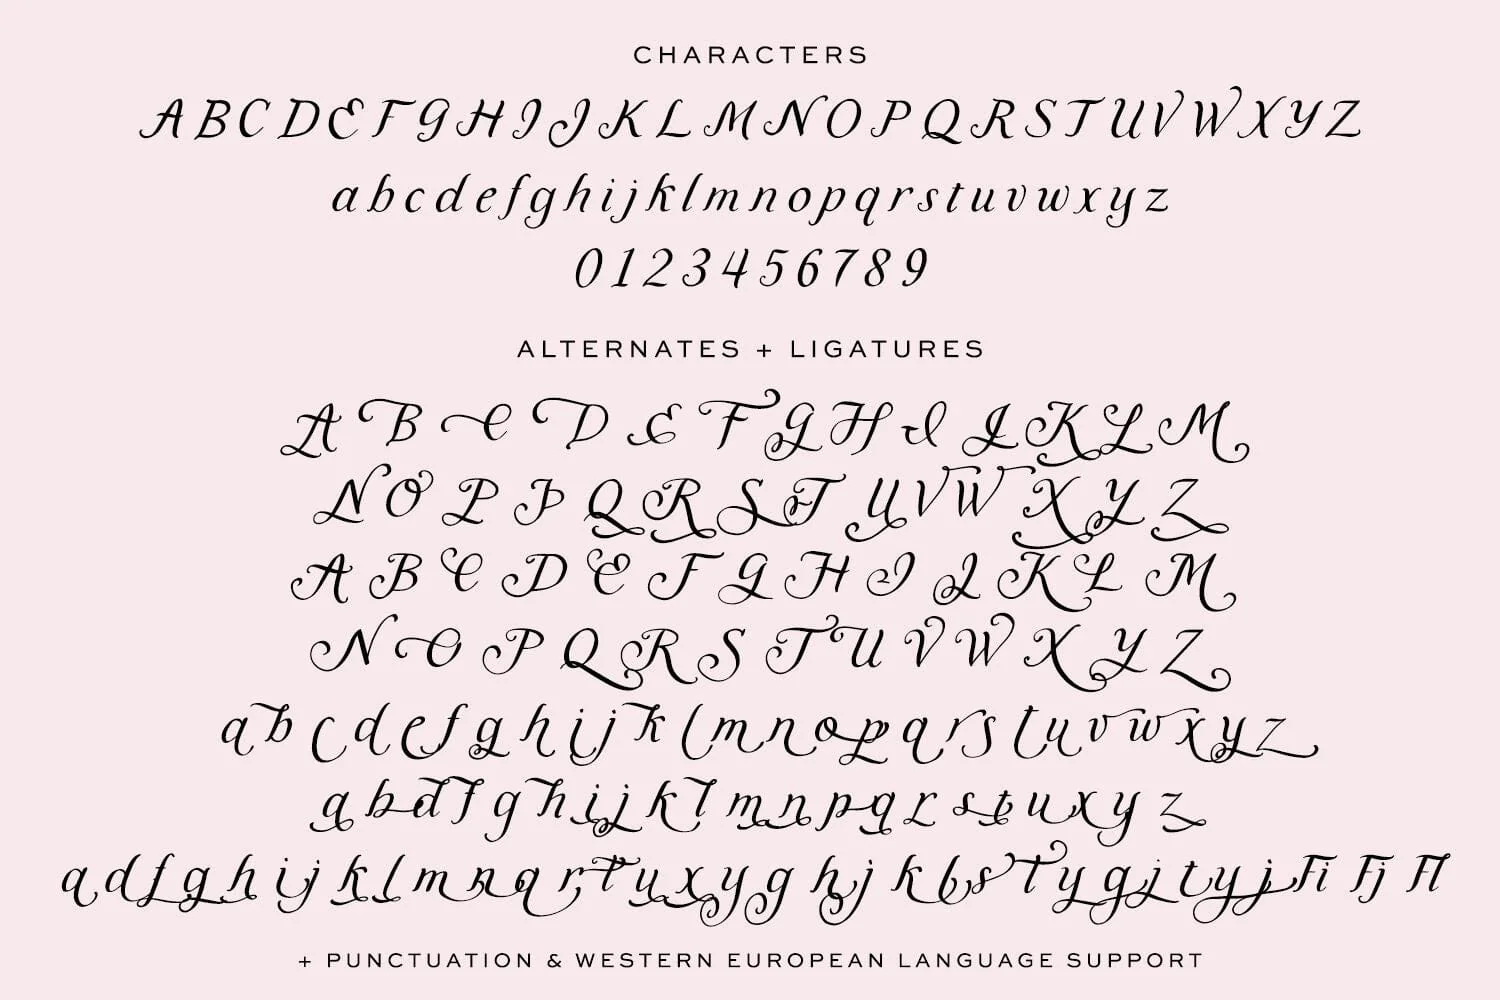 CHARACTERS
A B C D E F G H I J K L M N O P Q R S T U V W X Y Z
a b c d e f g h i j k l m n o p q r s t u v w x y z
0 1 2 3 4 5 6 7 8 9
ALTERNATES + LIGATURES
A B C D E F G H I J K L M
N O P P Q R S T U V W X Y Z
A B C D E F G H I J K L M
N O P Q R S T U V W X Y Z
a b c d e f g h i j k l m n o p q r s t u v w x y z
a b d f g h i j k l m n p q r s t u x y z
a d f g h i j k l m n q r t u x y g h j k b s t y g j t y j fi fj fl
+ PUNCTUATION & WESTERN EUROPEAN LANGUAGE SUPPORT